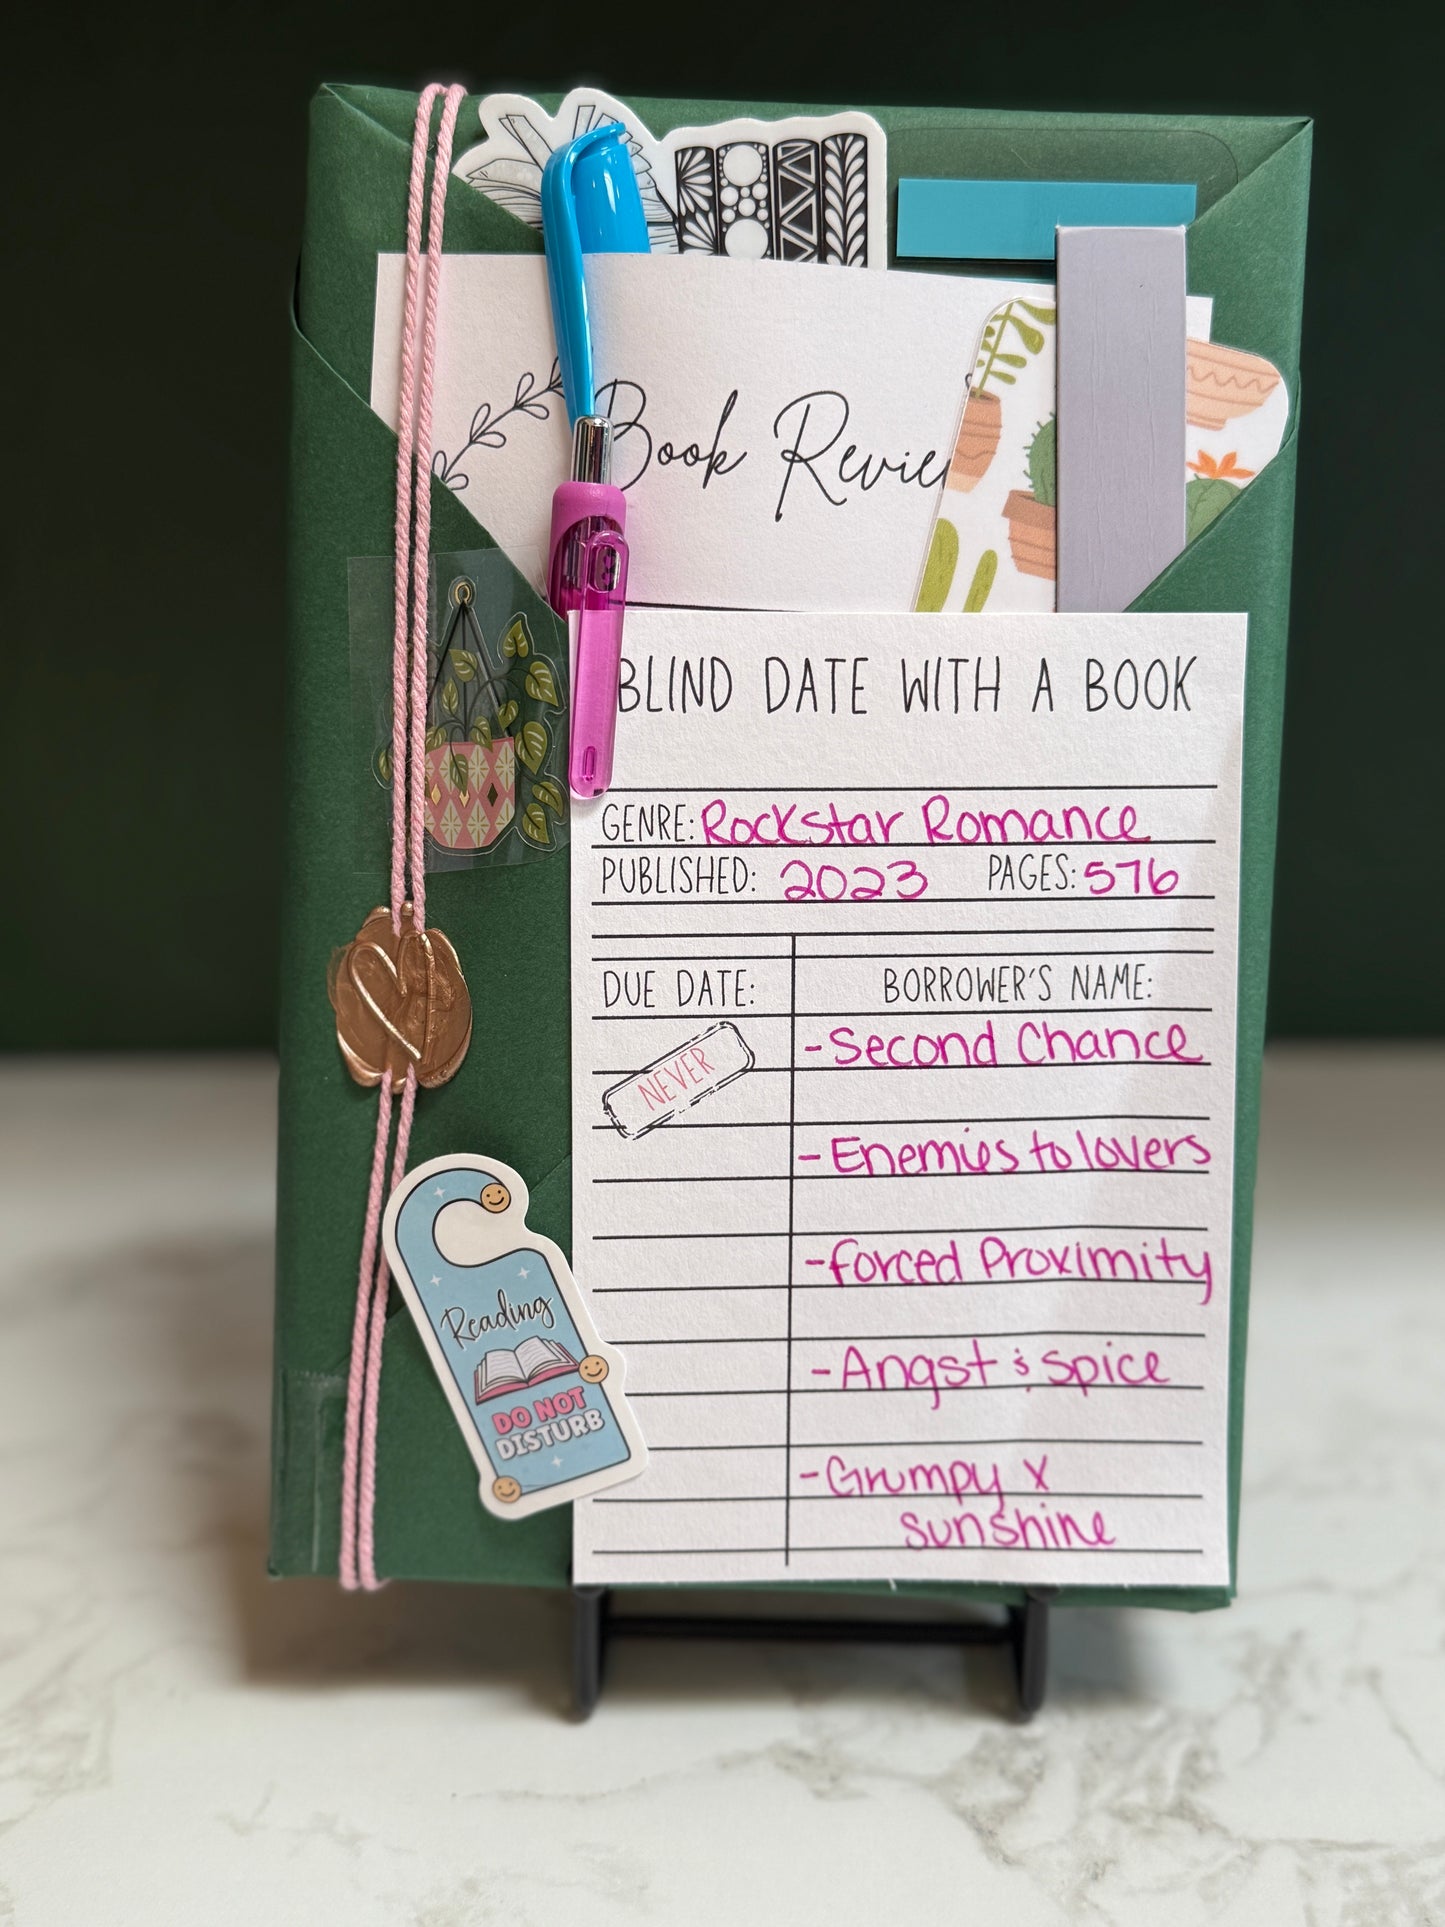 Book Revie
BLIND DATE WITH A BOOK
GENRE: Rockstar Romance
PUBLISHED: 2023 PAGES: 576
DUE DATE: BORROWER'S NAME:
NEVER
- Second Chance
- Enemies to lovers
- forced Proximity
- Angst & spice
- Grumpy x
sunshine
Reading
DO NOT
DISTURB